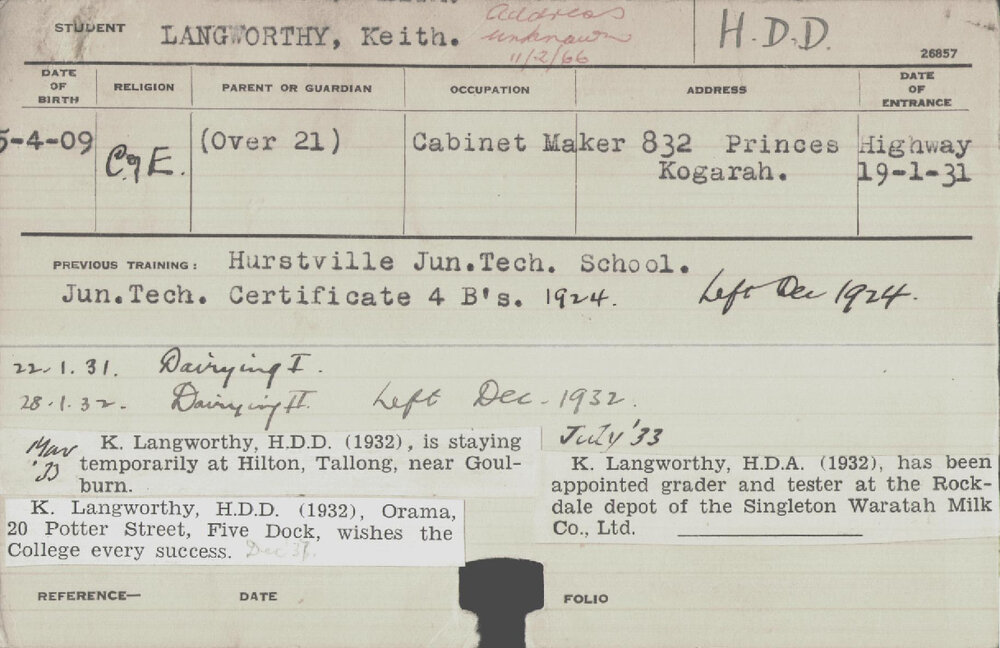 STUDENT LANGWORTHY, Keith.
Address
unknown
11/2/66
H.D.D.
26857
DATE OF BIRTH
RELIGION
PARENT OR GUARDIAN
OCCUPATION
ADDRESS
DATE OF ENTRANCE
5-4-09
C of E.
(Over 21)
Cabinet Maker
832 Princes Highway
Kogarah.
19-1-31
PREVIOUS TRAINING: Hurstville Jun.Tech. School.
Jun.Tech. Certificate 4 B's. 1924. Left Dec 1924.
22.1.31. Dairying I.
28.1.32. Dairying II. Left Dec. 1932.
Mar '33
K. Langworthy, H.D.D. (1932), is staying
temporarily at Hilton, Tallong, near Goul-
burn.
K. Langworthy, H.D.D. (1932), Orama,
20 Potter Street, Five Dock, wishes the
College every success. Dec 37.
July '33
K. Langworthy, H.D.A. (1932), has been
appointed grader and tester at the Rock-
dale depot of the Singleton Waratah Milk
Co., Ltd.
REFERENCE— DATE FOLIO